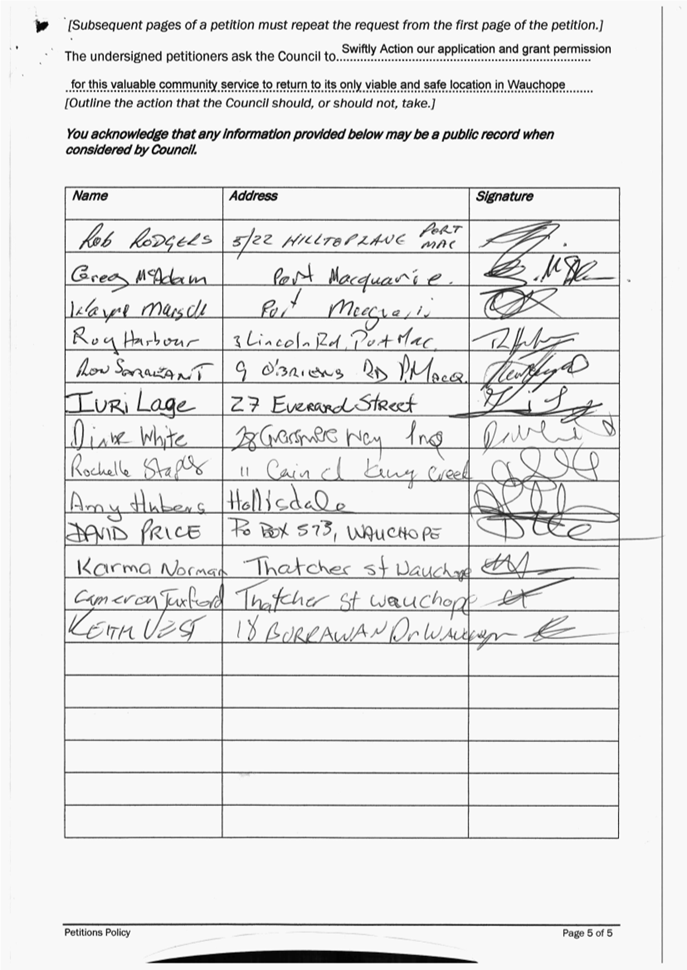 [Subsequent pages of a petition must repeat the request from the first page of the petition.]
The undersigned petitioners ask the Council to Swiftly Action our application and grant permission
for this valuable community service to return to its only viable and safe location in Wauchope
[Outline the action that the Council should, or should not, take.]
You acknowledge that any information provided below may be a public record when
considered by Council.
Name Address Signature
Rob RODGERS 5/22 HILLTOP PORT MAC
Greg McAdam Port Macquarie.
Wayne Port
Roy Harbour 3 Lincoln Rd, Port Mac.
RON SARGEANT 9 O'BRIENS RD P.MACQ.
IURI Lage 27 EVERARD STREET
Diane White 28 Way
Rochelle Staples 11 Cain cl King Creek
Amy Hollisdale
DAVID PRICE PO BOX 573, WAUCHOPE
Karma Norman Thatcher st Wauchope
Cameron Thatcher st wauchope
KEITH VEST 18 BURRAWAN Dr Wauchope
Petitions Policy Page 5 of 5